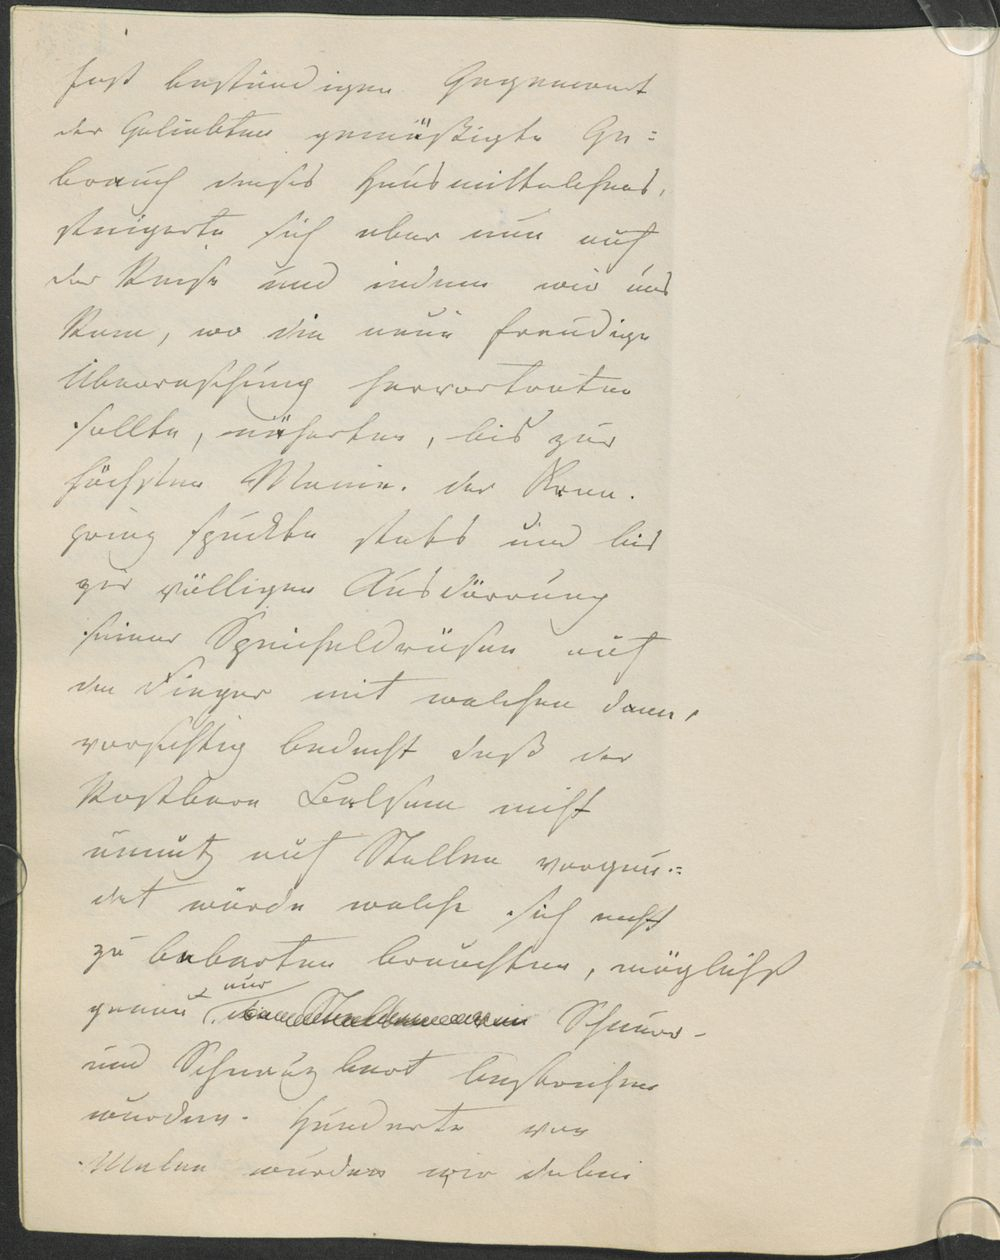 fast beständigen Gegenwart
der Geliebten gemäßigte Ge=
brauch dieses Hausmittelchens,
steigerte sich aber nun auf
der Reise und indem wir uns
Rom, wo die neue freudige
Überraschung hervortreten
sollte, näherten, bis zur
höchsten Manie. der Kron.
prinz spuckte stets und bis
zur völligen Ausdörrung
seiner Speicheldrüsen auf
den Finger mit welchen dann,
vorsichtig bedacht daß der
kostbare Balsam nicht
unnütz auf Stellen vergeu=
det würde welche sich nicht
zu bebarten brauchten, möglichst
genau nur Schnurr-
und Schnauzbart bestrichen
wurden. Hunderte von
Malen wurden wir dabei